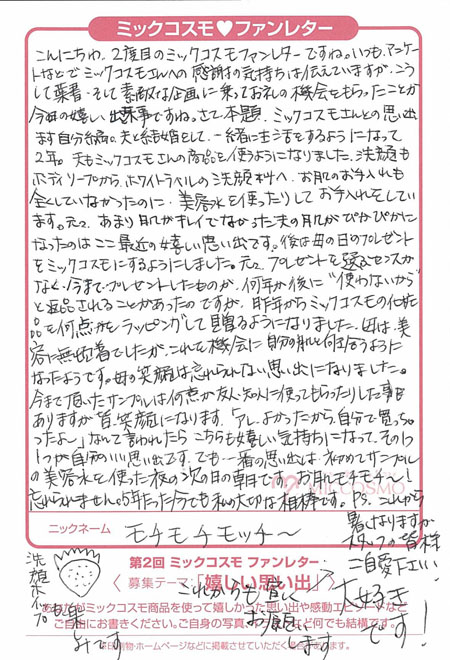 ミックコスモ♥ファンレター
こんにちわ。2度目のミックコスモファンレターですね。いつもアンケー
トなどでミックコスモさんへの感謝の気持ちは伝えていますが、こう
して葉書・そして素敵な企画に乗ってお礼の機会をもらったことが
今毎の嬉しい出来事ですね。さて、本題、ミックコスモさんとの思い出
ます自分編。夫と結婚をして、一緒に生活をするようになって
2年。夫もミックコスモさんの商品を使うようになりました。洗顔も
ボディソープから、ホワイトラベルの洗顔料へ、お肌のお手入れも
全くしていなかったのに、美容水を使ったりしてお手入れをしてい
ます。元々、あまり肌がキレイでなかった夫の肌がぴかぴかに
なったのはここ最近の嬉しい思い出です。後は母の日のプレゼント
をミックコスモにするようにしました。元々、プレゼントを選ぶセンスが
なく、今までプレゼントしたものが、何年か後に"使わないから"
と返品されることがあったのですが、昨年からミックコスモの化粧
品を何点かをラッピングして贈るようになりました。母は、美
容に無頓着でしたが、これを機会に自分の肌と向き合うように
なったようです。母の笑顔は忘れられない思い出になりました。
今まで頂いたサンプルは何点か友人・知人に使ってもらったりした事も
ありますが皆、笑顔になります。「アレ、よかったから、自分で買っちゃ
ったよー」なんて言われたらこちらも嬉しい気持ちになって、その1つ
1つが自分のいい思い出です。でも一番の思い出は、初めてサンプル
の美容水を使った夜の次の日の事です。お肌モチモチ〜!
忘れられません。5年たった今でも私の大切な相棒です。P.S. これから
暑くなりますが
スタッフの皆様
ご自愛下さい!
ニックネーム モチモチモッチ〜
第2回 ミックコスモ ファンレター
〈募集テーマ:「嬉しい思い出」〉
洗顔ホイップ
みです
これからも皆に
お願
します
大好き
です!
あなたがミックコスモ商品を使って嬉しかった思い出や感動エピソードなど
ご自由にお書きください。ご自身の写真、イラストなど何でも結構です。
※印刷物・ホームページなどに掲載させていただく場合